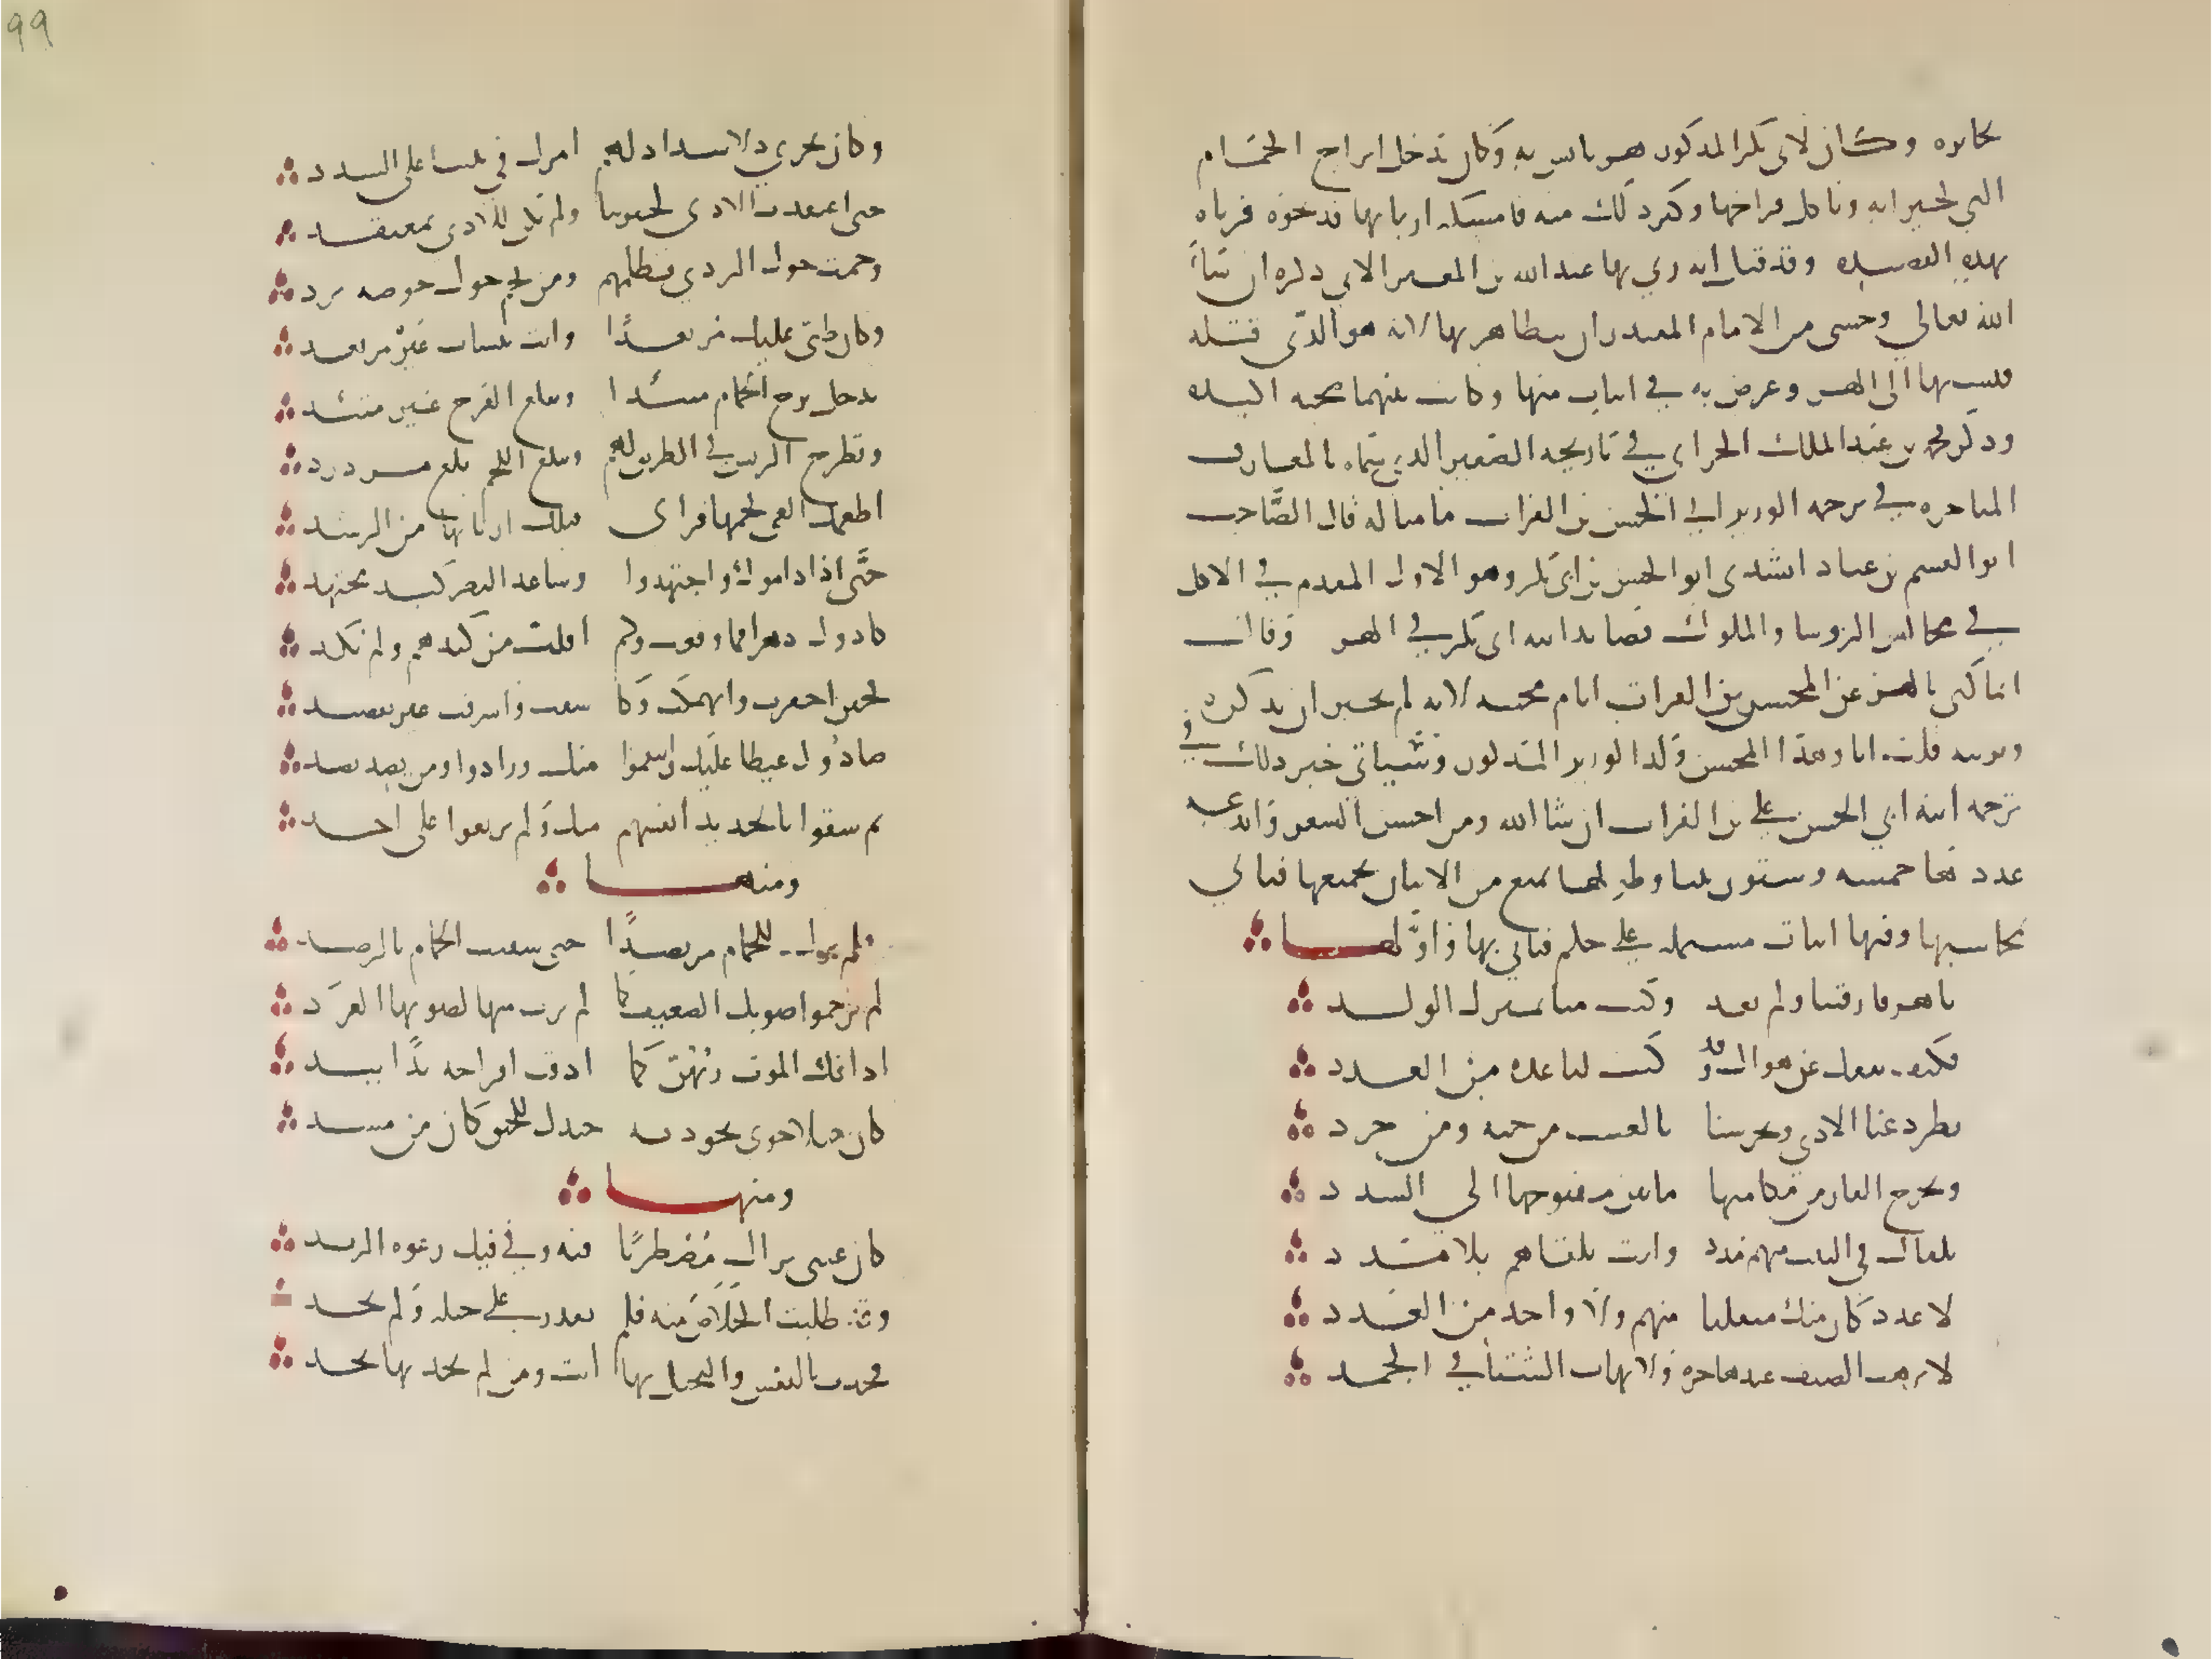 وكان لابى بكر المذكور هر يانس به وكان يدخل ابراج الحمام
التي لجيرانه وياكل فراخها وكثر ذلك منه فامسكه اربابها فذبحوه فرثاه
بهذه القصيده وقد قيل انه رثى بها عبد الله بن المعتز الاتي ذكره ان شاء
الله تعالى وخشى من الامام المقتدر ان يتظاهر بها لانه هو الذى قتله
فنسبها الى الهر وعرض به في ابيات منها وكانت بينهما صحبه اكيده
وذكر محمد بن عبد الملك الهمذانى في تاريخه الصغير الذي سماه المعارف
المتاخره في ترجمه الوزير ابي الحسن بن الفرات ما مثاله قال الصاحب
ابو القسم بن عباد انشدنى ابو الحسن بن ابى بكر وهو الاول المقدم في الاكل
في مجالس الروسا والملوك قصايد ابيه ابى بكر في الهر وقال
انما كنى بالهر عن المحسن بن الفرات ايام محنته لانه لم يجسر ان يذكره
ويرثيه قلت انا وهذا المحسن ولد الوزير المذكور وسياتي خبر ذلك في
ترجمه ابيه ابي الحسن على بن الفرات ان شا الله ومن احسن الشعر وابدعه
عددها خمسه وستون بيتا وطولها يمنع من الاتيان بجميعها فناتي
بمحاسنها وفيها ابيات مشتمله على حكم فناتي بها واولها
يا هر فارقتنا ولم تعد وكنت منا بمنزل الولد
فكيف ننفك عن هواك وقد كنت لنا عده من العدد
تطرد عنا الاذى وتحرسنا بالغيب من حيه ومن جرد
وتخرج الفار من مكامنها ما بين مفتوحها الى السدد
يلقاك في البيت منهم مدد وانت تلقاهم بلا مدد
لا عدد كان منك منفلتا منهم ولا واحد من العدد
لا ترهب الصيف عند هاجره ولا تهاب الشتاء في الجمد
99
وكان يجري ولا سداد لهم امرك في بيتنا على السدد
حتى اعتقدت الاذى لجيرتنا ولم تكن للاذى بمعتقد
وحمت حول الردى بظلمهم ومن يحم حول حوضه يرد
وكان قلبى عليك مرتعدا وانت تنساب غير مرتعد
تدخل برج الحمام متئدا وتبلع الفرخ غير متئد
وتطرح الريش في الطريق لهم وتبلع اللحم بلع مزدرد
اطعمك الغى لحمها فراى قتلك اربابها من الرشد
حتى اذا داوموك واجتهدوا وساعد النصر كيد مجتهد
كادوك دهرا فما وقعت وكم افلت من كيدهم ولم تكد
فحين اخفرت وانهمكت وكا شفت واسرفت غير مقتصد
صادوك غيظا عليك وانتقموا منك وزادوا ومن يصد يصد
ثم شفوا بالحديد انفسهم منك ولم يرعووا على احد
ومنها
فلم تزل للحمام مرتصدا حتى سقيت الحمام بالرصد
لم يرحموا صوتك الضعيف كما لم ترث منها لصوتها الغرد
اذاقك الموت ربهن كما اذقت افراخه يدا بيد
كان حبلا حوى بجودته جيدك للخنق كان من مسد
ومنها
كان عينى تراك مضطربا فيه وفي فيك رغوه الزبد
وقد طلبت الخلاص منه فلم تقدر على حيله ولم تجد
فجدت بالنفس والبخيل بها انت ومن لم يجد بها يجد